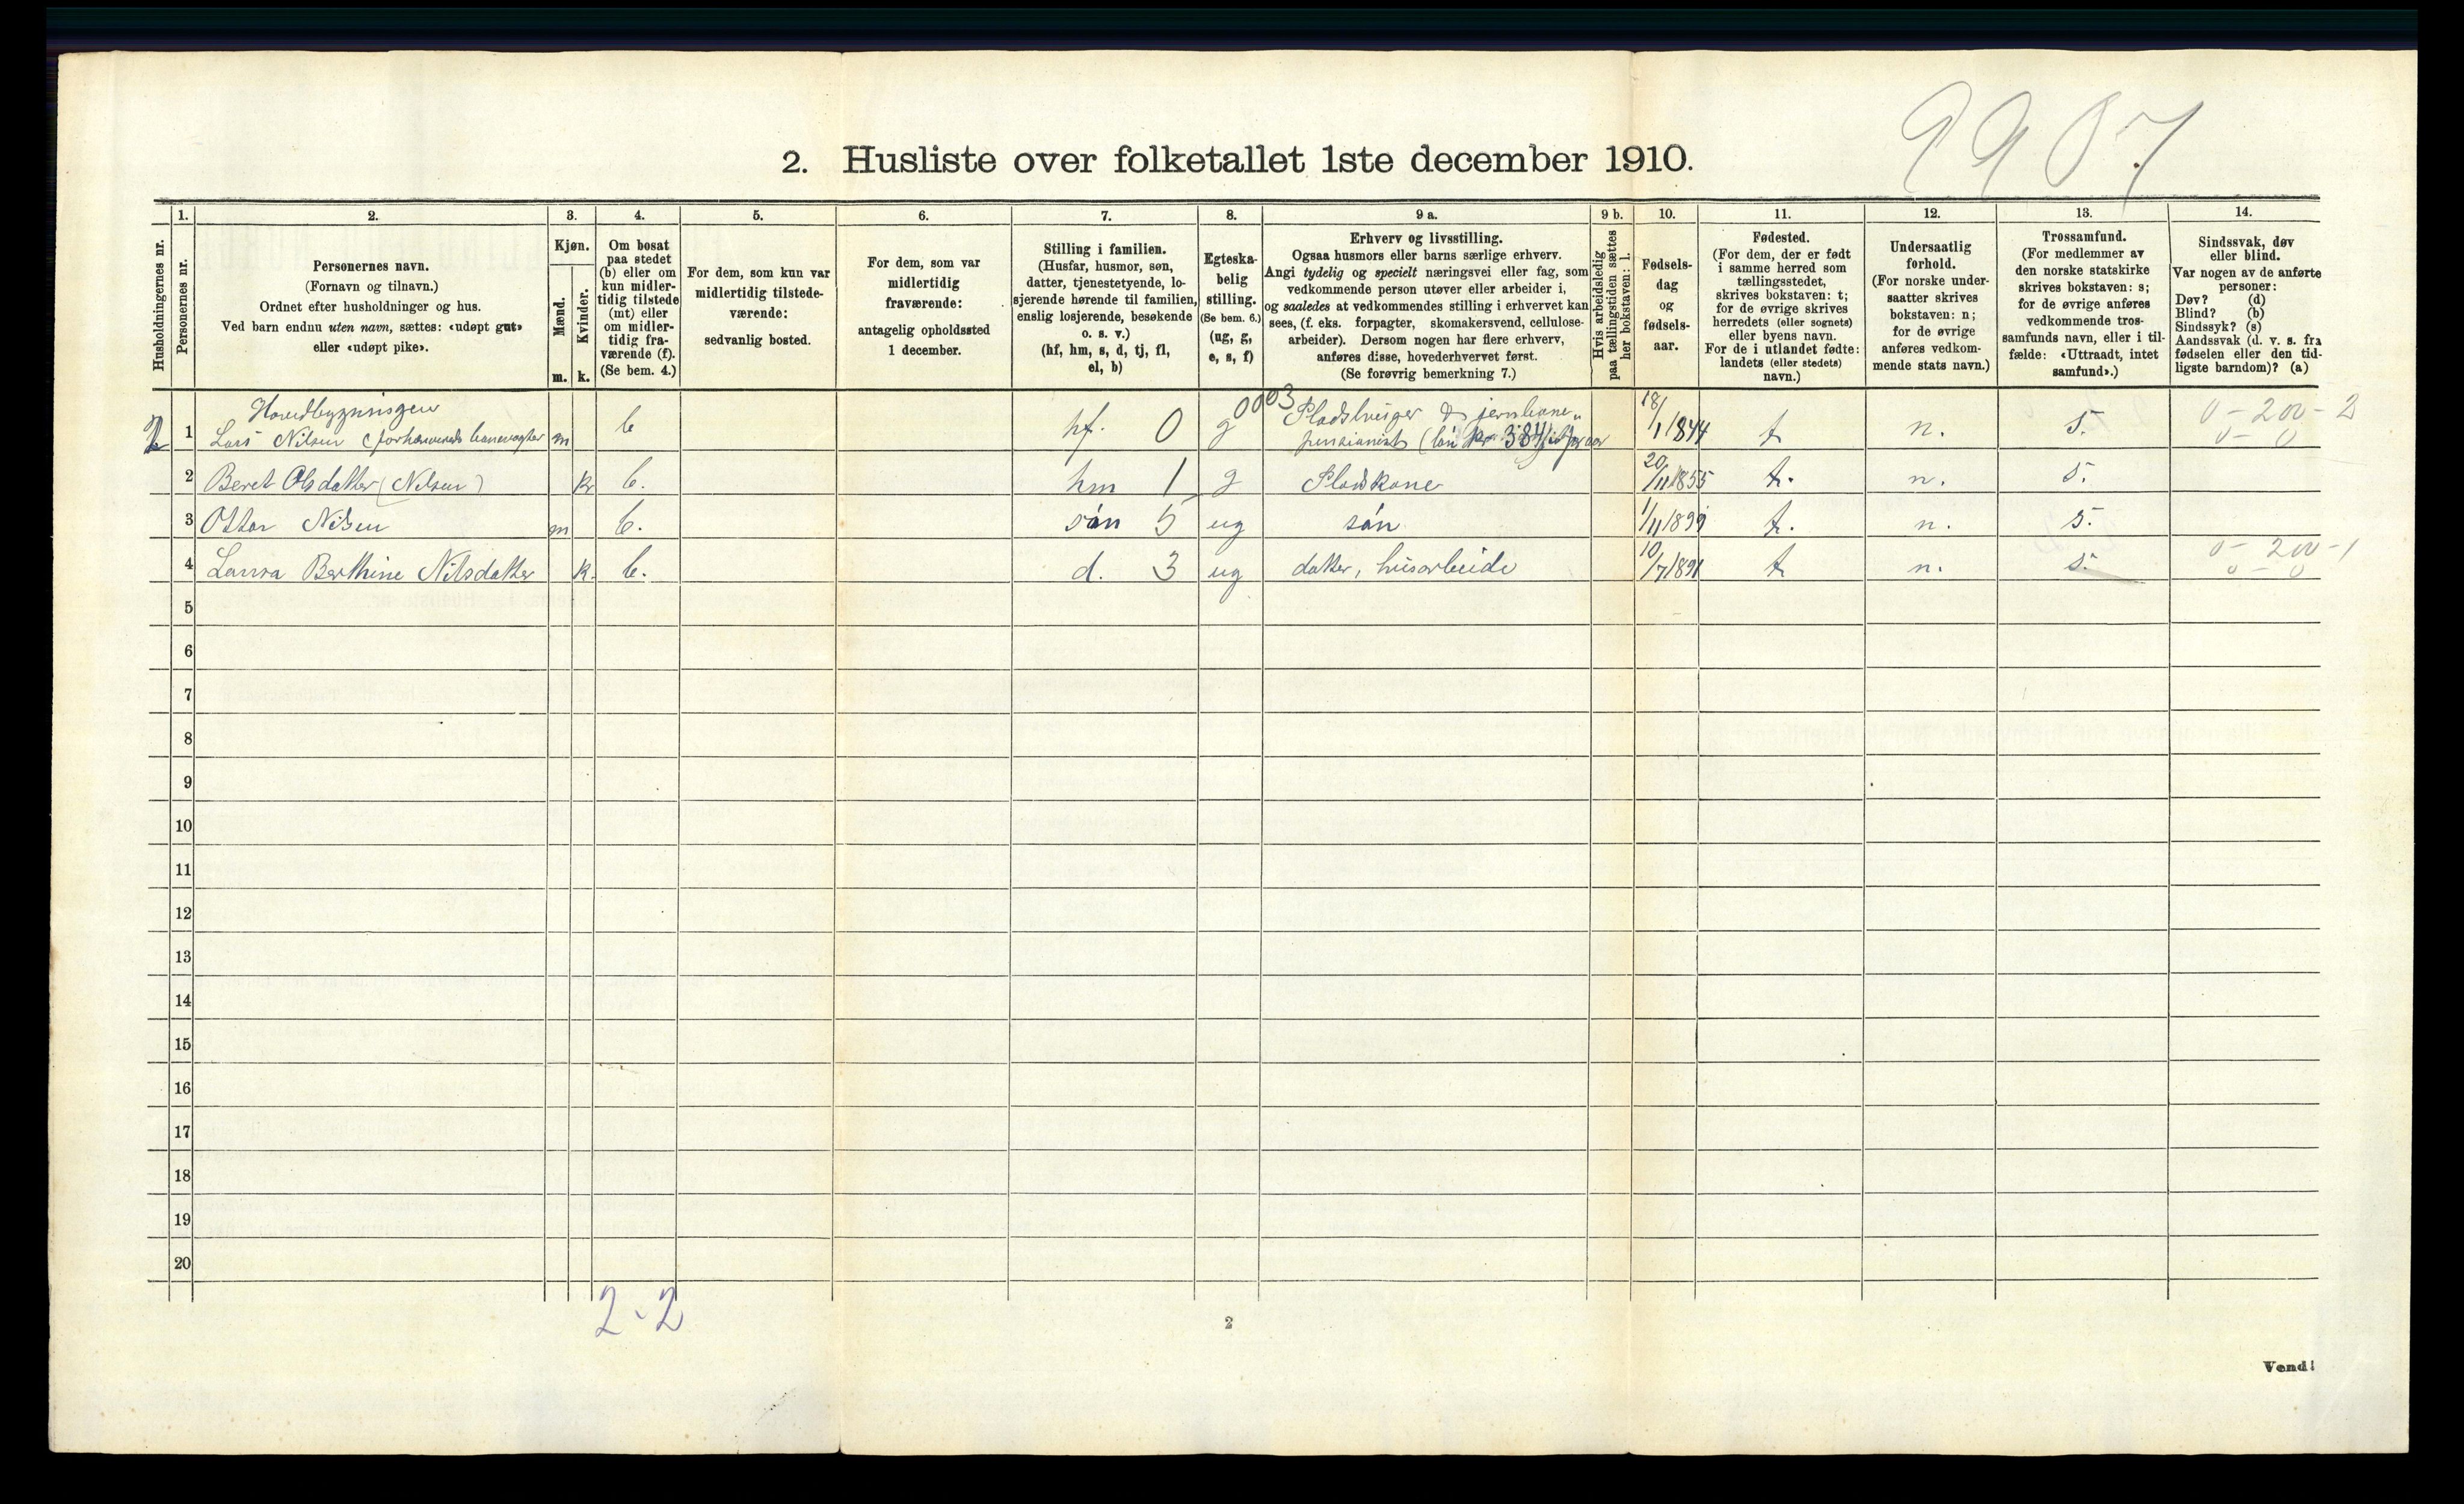 9907
2. Husliste over folketallet 1ste december 1910.
Husholdningernes nr.
1.
Personernes nr.
2.
Personernes navn.
(Fornavn og tilnavn.)
Ordnet efter husholdninger og hus.
Ved barn endnu uten navn, sættes: «udøpt gut»
eller «udøpt pike».
3.
Kjøn.
Mænd.
Kvinder.
m.
k.
4.
Om bosat
paa stedet
(b) eller om
kun midler-
tidig tilstede
(mt) eller
om midler-
tidig fra-
værende (f).
(Se bem. 4.)
5.
For dem, som kun var
midlertidig tilstede-
værende:
sedvanlig bosted.
6.
For dem, som var
midlertidig
fraværende:
antagelig opholdssted
1 december.
7.
Stilling i familien.
(Husfar, husmor, søn,
datter, tjenestetyende, lo-
sjerende hørende til familien,
enslig losjerende, besøkende
o. s. v.)
(hf, hm, s, d, tj, fl,
el, b)
8.
Egteska-
belig
stilling.
(Se bem. 6.)
(ug, g,
e, s, f)
9 a.
Erhverv og livsstilling.
Ogsaa husmors eller barns særlige erhverv.
Angi tydelig og specielt næringsvei eller fag, som
vedkommende person utøver eller arbeider i,
og saaledes at vedkommendes stilling i erhvervet kan
sees, (f. eks. forpagter, skomakersvend, cellulose-
arbeider). Dersom nogen har flere erhverv,
anføres disse, hovederhvervet først.
(Se forøvrig bemerkning 7.)
9 b.
Hvis arbeidsledig
paa tællingstiden sættes
her bokstaven: l.
10.
Fødsels-
dag
og
fødsels-
aar.
11.
Fødested.
(For dem, der er født
i samme herred som
tællingsstedet,
skrives bokstaven: t;
for de øvrige skrives
herredets (eller sognets)
eller byens navn.
For de i utlandet fødte:
landets (eller stedets)
navn.)
12.
Undersaatlig
forhold.
(For norske under-
saatter skrives
bokstaven: n;
for de øvrige
anføres vedkom-
mende stats navn.)
13.
Trossamfund.
(For medlemmer av
den norske statskirke
skrives bokstaven: s;
for de øvrige anføres
vedkommende tros-
samfunds navn, eller i til-
fælde: «Uttraadt, intet
samfund».)
14.
Sindssvak, døv
eller blind.
Var nogen av de anførte
personer:
Døv? (d)
Blind? (b)
Sindssyk? (s)
Aandssvak (d. v. s. fra
fødselen eller den tid-
ligste barndom)? (a)
Hovedbygningen
1 Lars Nilsen (forhenværende banevogter m b hf. 0 g 0003 Pladsbruger & jernbane-
pensionist (løn kr 384 18/1 1844 t n. s. 0-200-2
0-0
2 Beret Olsdatter (Nilsen) k b. hm 1 g Pladskone 20/11 1855 t. n. s.
3 Ottar Nilsen m b. søn 5 ug søn 1/11 1899 t. n. s.
4 Laura Berthine Nilsdatter k. b. d. 3 ug datter, husarbeide 10/7 1891 t n. s. 0-200-1
0-0
5
6
7
8
9
10
11
12
13
14
15
16
17
18
19
20
2-2
2
Vend!